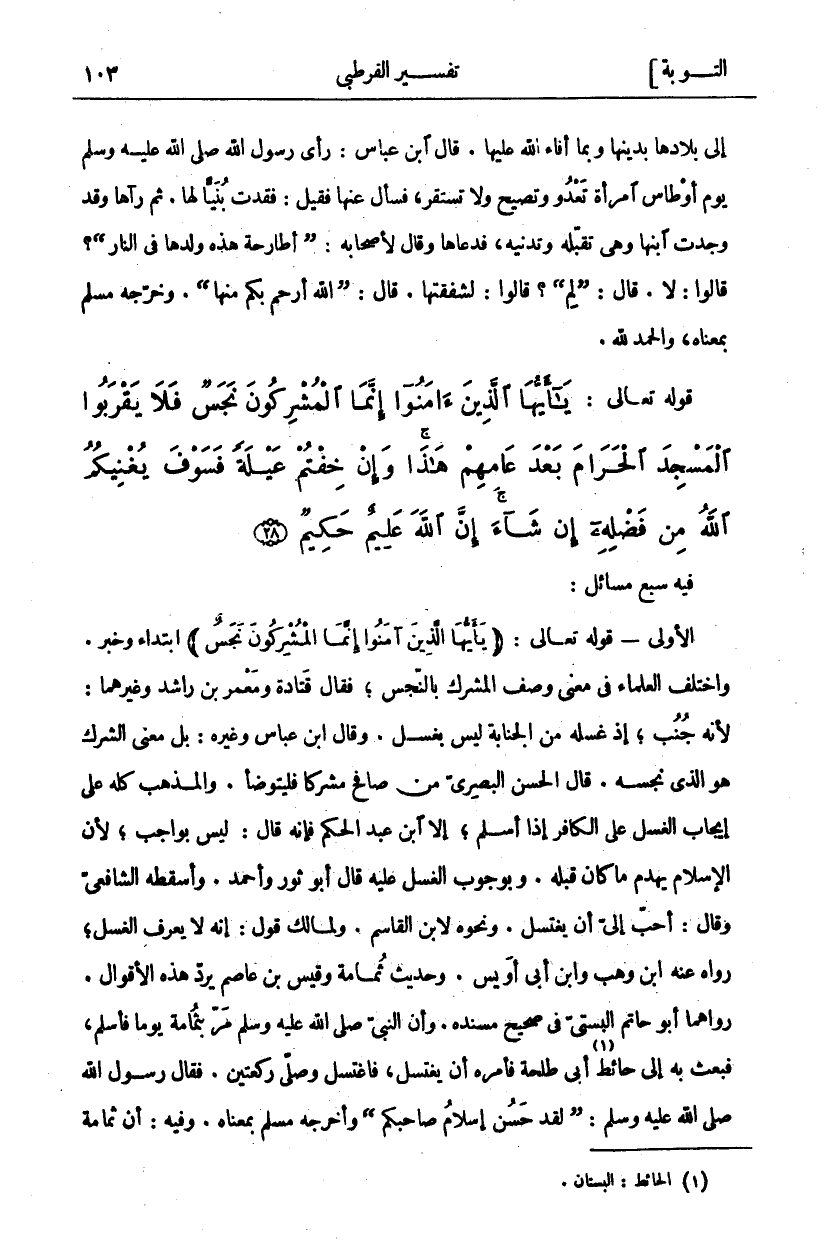 التـــوبة]	تفســـير القرطبى	١٠٣
إلى بلادها بدينها وبما أفاء الله عليها . قال ٱبن عباس : رأى رسول الله صلى الله عليــه وسلم
يوم أوْطاس ٱمرأة تَعْدُو وتصيح ولا تستقر، فسأل عنها فقيل : فقدت بُنَيًّا لها . ثم رآها وقد
وجدت ٱبنها وهى تقبّله وتدنيه، فدعاها وقال لأصحابه : ” أطارحة هذه ولدها فى النار “؟
قالوا : لا . قال : ”لِمَ“ ؟ قالوا : لشفقتها . قال : ”الله أرحم بكم منها“ . وخرّجه مسلم
بمعناه، والحمد لله .
قوله تعـالى : يَـٰٓأَيُّهَا ٱلَّذِينَ ءَامَنُوٓا۟ إِنَّمَا ٱلْمُشْرِكُونَ نَجَسٌ فَلَا يَقْرَبُوا۟
ٱلْمَسْجِدَ ٱلْحَرَامَ بَعْدَ عَامِهِمْ هَـٰذَا ۚ وَإِنْ خِفْتُمْ عَيْلَةً فَسَوْفَ يُغْنِيكُمُ
ٱللَّهُ مِن فَضْلِهِۦٓ إِن شَآءَ ۚ إِنَّ ٱللَّهَ عَلِيمٌ حَكِيمٌ ﴿٢٨﴾
فيه سبع مسائل :
الأولى — قوله تعـالى : ﴿ يَأَيُّهَا الَّذِينَ آمَنُوا إِنَّمَـا الْمُشْرِكُونَ نَجَسٌ ﴾ ابتداء وخبر .
واختلف العلماء فى معنى وصف المشرك بالنّجس ؛ فقال قَتادة ومَعْمر بن راشد وغيرهما :
لأنه جُنُب ؛ إذ غسله من الجنابة ليس بغســل . وقال ابن عباس وغيره : بل معنى الشرك
هو الذى نجسـه . قال الحسن البصرىّ مـن صافح مشركا فليتوضأ . والمـذهب كله على
إيجاب الغسل على الكافر إذا أسـلم ؛ إلا ٱبن عبد الحكم فإنه قال : ليس بواجب ؛ لأن
الإسلام يهدم ماكان قبله . وبوجوب الغسل عليه قال أبو ثور وأحمد . وأسقطه الشافعىّ
وقال : أحبّ إلىّ أن يغتسل . ونحوه لابن القاسم . ولمـالك قول : إنه لا يعرف الغسل؛
رواه عنه ابن وهب وابن أبى أوَيس . وحديث ثُمـامة وقيس بن عاصم يردّ هذه الأقوال .
رواهما أبو حاتم البستىّ فى صحيح مسنده . وأن النبىّ صلى الله عليه وسلم مَرّ بثُمامة يوما فأسلم،
فبعث به إلى حائط (١) أبى طلحة فأمره أن يغتسل، فاغتسل وصلّى ركعتين . فقال رسول الله
صلى الله عليه وسلم : ” لقد حَسُن إسلامُ صاحبكم “ وأخرجه مسلم بمعناه . وفيه : أن ثمامة
(١) الحائط : البستان .